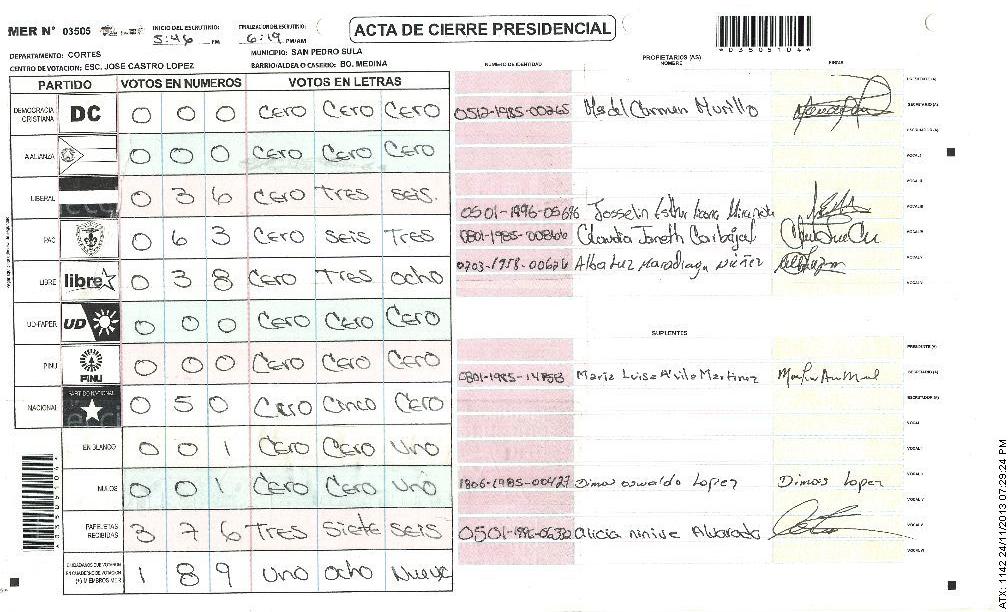 MER N° 03505
INICIO DEL ESCRUTINIO: 5:46 PM
FINALIZACION DEL ESCRUTINIO: 6:19 PM/AM
ACTA DE CIERRE PRESIDENCIAL
DEPARTAMENTO: CORTES
MUNICIPIO: SAN PEDRO SULA
CENTRO DE VOTACION: ESC. JOSE CASTRO LOPEZ
BARRIO/ALDEA O CASERIO: BO. MEDINA
PARTIDO VOTOS EN NUMEROS VOTOS EN LETRAS
DEMOCRACIA CRISTIANA DC 0 0 0 Cero Cero Cero
ALIANZA 0 0 0 Cero Cero Cero
LIBERAL 0 3 6 Cero Tres seis.
PAC 0 6 3 Cero seis Tres
LIBRE libre 0 3 8 Cero Tres ocho
UD-FAPER UD 0 0 0 Cero Cero Cero
PINU PINU 0 0 0 Cero Cero Cero
NACIONAL PARTIDO NACIONAL 0 5 0 Cero Cinco Cero
EN BLANCO 0 0 1 Cero Cero Uno
NULOS 0 0 1 Cero Cero Uno
PAPELETAS RECIBIDAS 3 7 6 Tres Siete seis
CIUDADANOS QUE VOTARON EN CUADERNO DE VOTACION (+) MIEMBROS MER 1 8 9 Uno ocho Nueve
PROPIETARIOS (AS)
NUMERO DE IDENTIDAD NOMBRE FIRMA
0512-1985-00265 Ma del Carmen Murillo
0501-1996-05696 Josselin
0801-1985-00866 Claudia Janeth Carbajal
0703-1958-00626 Alba Luz Maradiaga
SUPLENTES
0801-1985-14858 Maria Luisa Avila Martinez
1806-1985-00427 Dimas oswaldo Lopez Dimas Lopez
0501-1996-06330 alicia ninive Alvarado
ATX: 1142 24/11/2013 07:29:24 PM